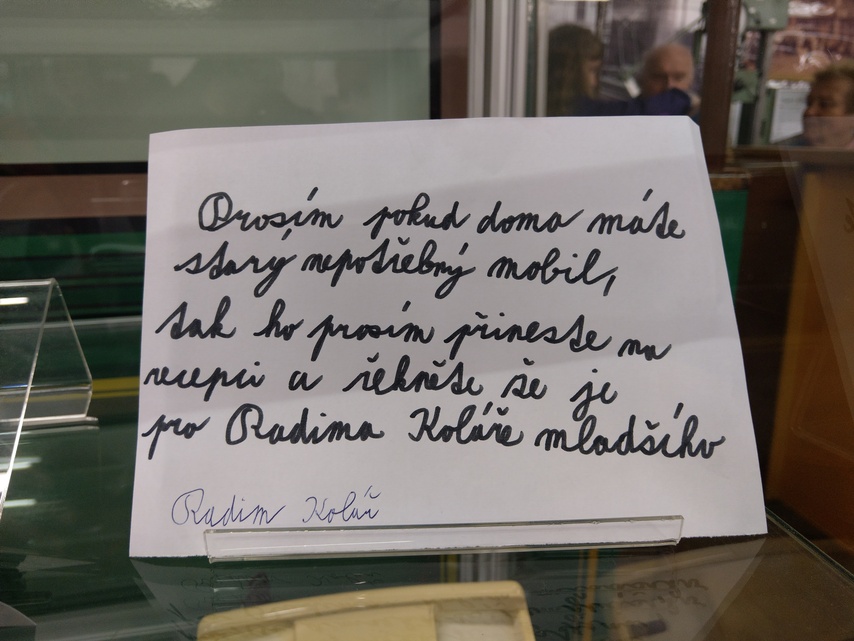 Prosím pokud doma máte
starý nepotřebný mobil,
tak ho prosím přineste na
recepci a řekněte že je
pro Radima Koláře mladšího
Radim Kolář